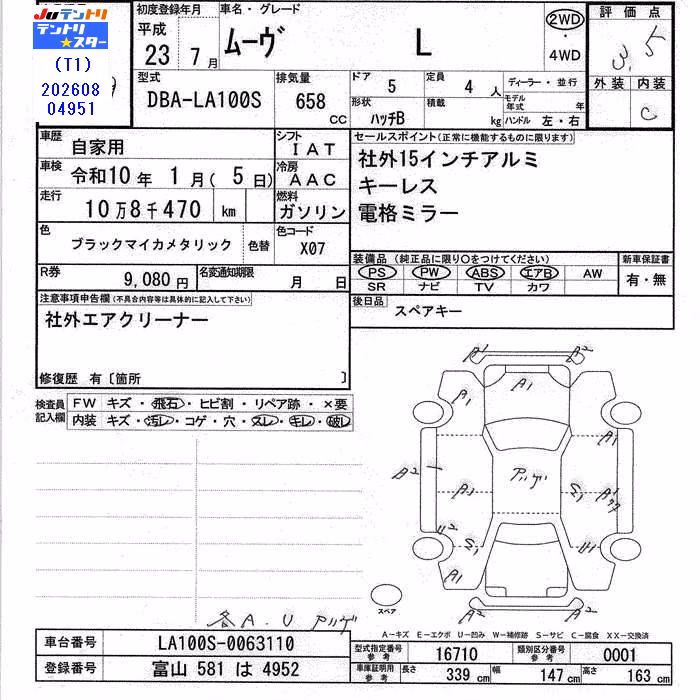 JUテントリ
テントリ★スター
(T1)
202608
04951
初度登録年月
平成
23年 7月
車名・グレード
ムーヴ L
2WD
・
4WD
評価点
3.5
外装 内装
C
型式
DBA-LA100S
排気量
658 CC
ドア 5
定員 4人
ディーラー・並行
形状 ハッチB
積載 kg
モデル年式 年
ハンドル 左・右
車歴 自家用
シフト IAT
車検 令和10年 1月( 5日)
冷房 AAC
走行 10万8千470 km
燃料 ガソリン
色 ブラックマイカメタリック 色替
色コード X07
R券 9,080円
名変通知期限 月 日
セールスポイント(正常に機能するものに限ります)
社外15インチアルミ
キーレス
電格ミラー
装備品(純正品に限り○をつけてください)
新車保証書
PS PW ABS エアB AW
SR ナビ TV カワ
有・無
後日品 スペアキー
注意事項申告欄(不具合内容等は具体的に記入して下さい)
社外エアクリーナー
修復歴 有〔箇所 〕
検査員記入欄
FW キズ・飛石・ヒビ割・リペア跡・×要
内装 キズ・汚レ・コゲ・穴・スレ・キレ・破レ
A2 A2
A1 A1
A1
A2 A1 アツゲ S1 A1
U2 S1 U1
A1
A2 A2
スペア
各A.U アツゲ
A-キズ E-エクボ U-凹み W-補修跡 S-サビ C-腐食 XX-交換済
車台番号 LA100S-0063110
登録番号 富山 581 は 4952
型式指定番号 参考 16710
類別区分番号 参考 0001
車庫証明用 参考 長さ 339cm 幅 147cm 高さ 163cm